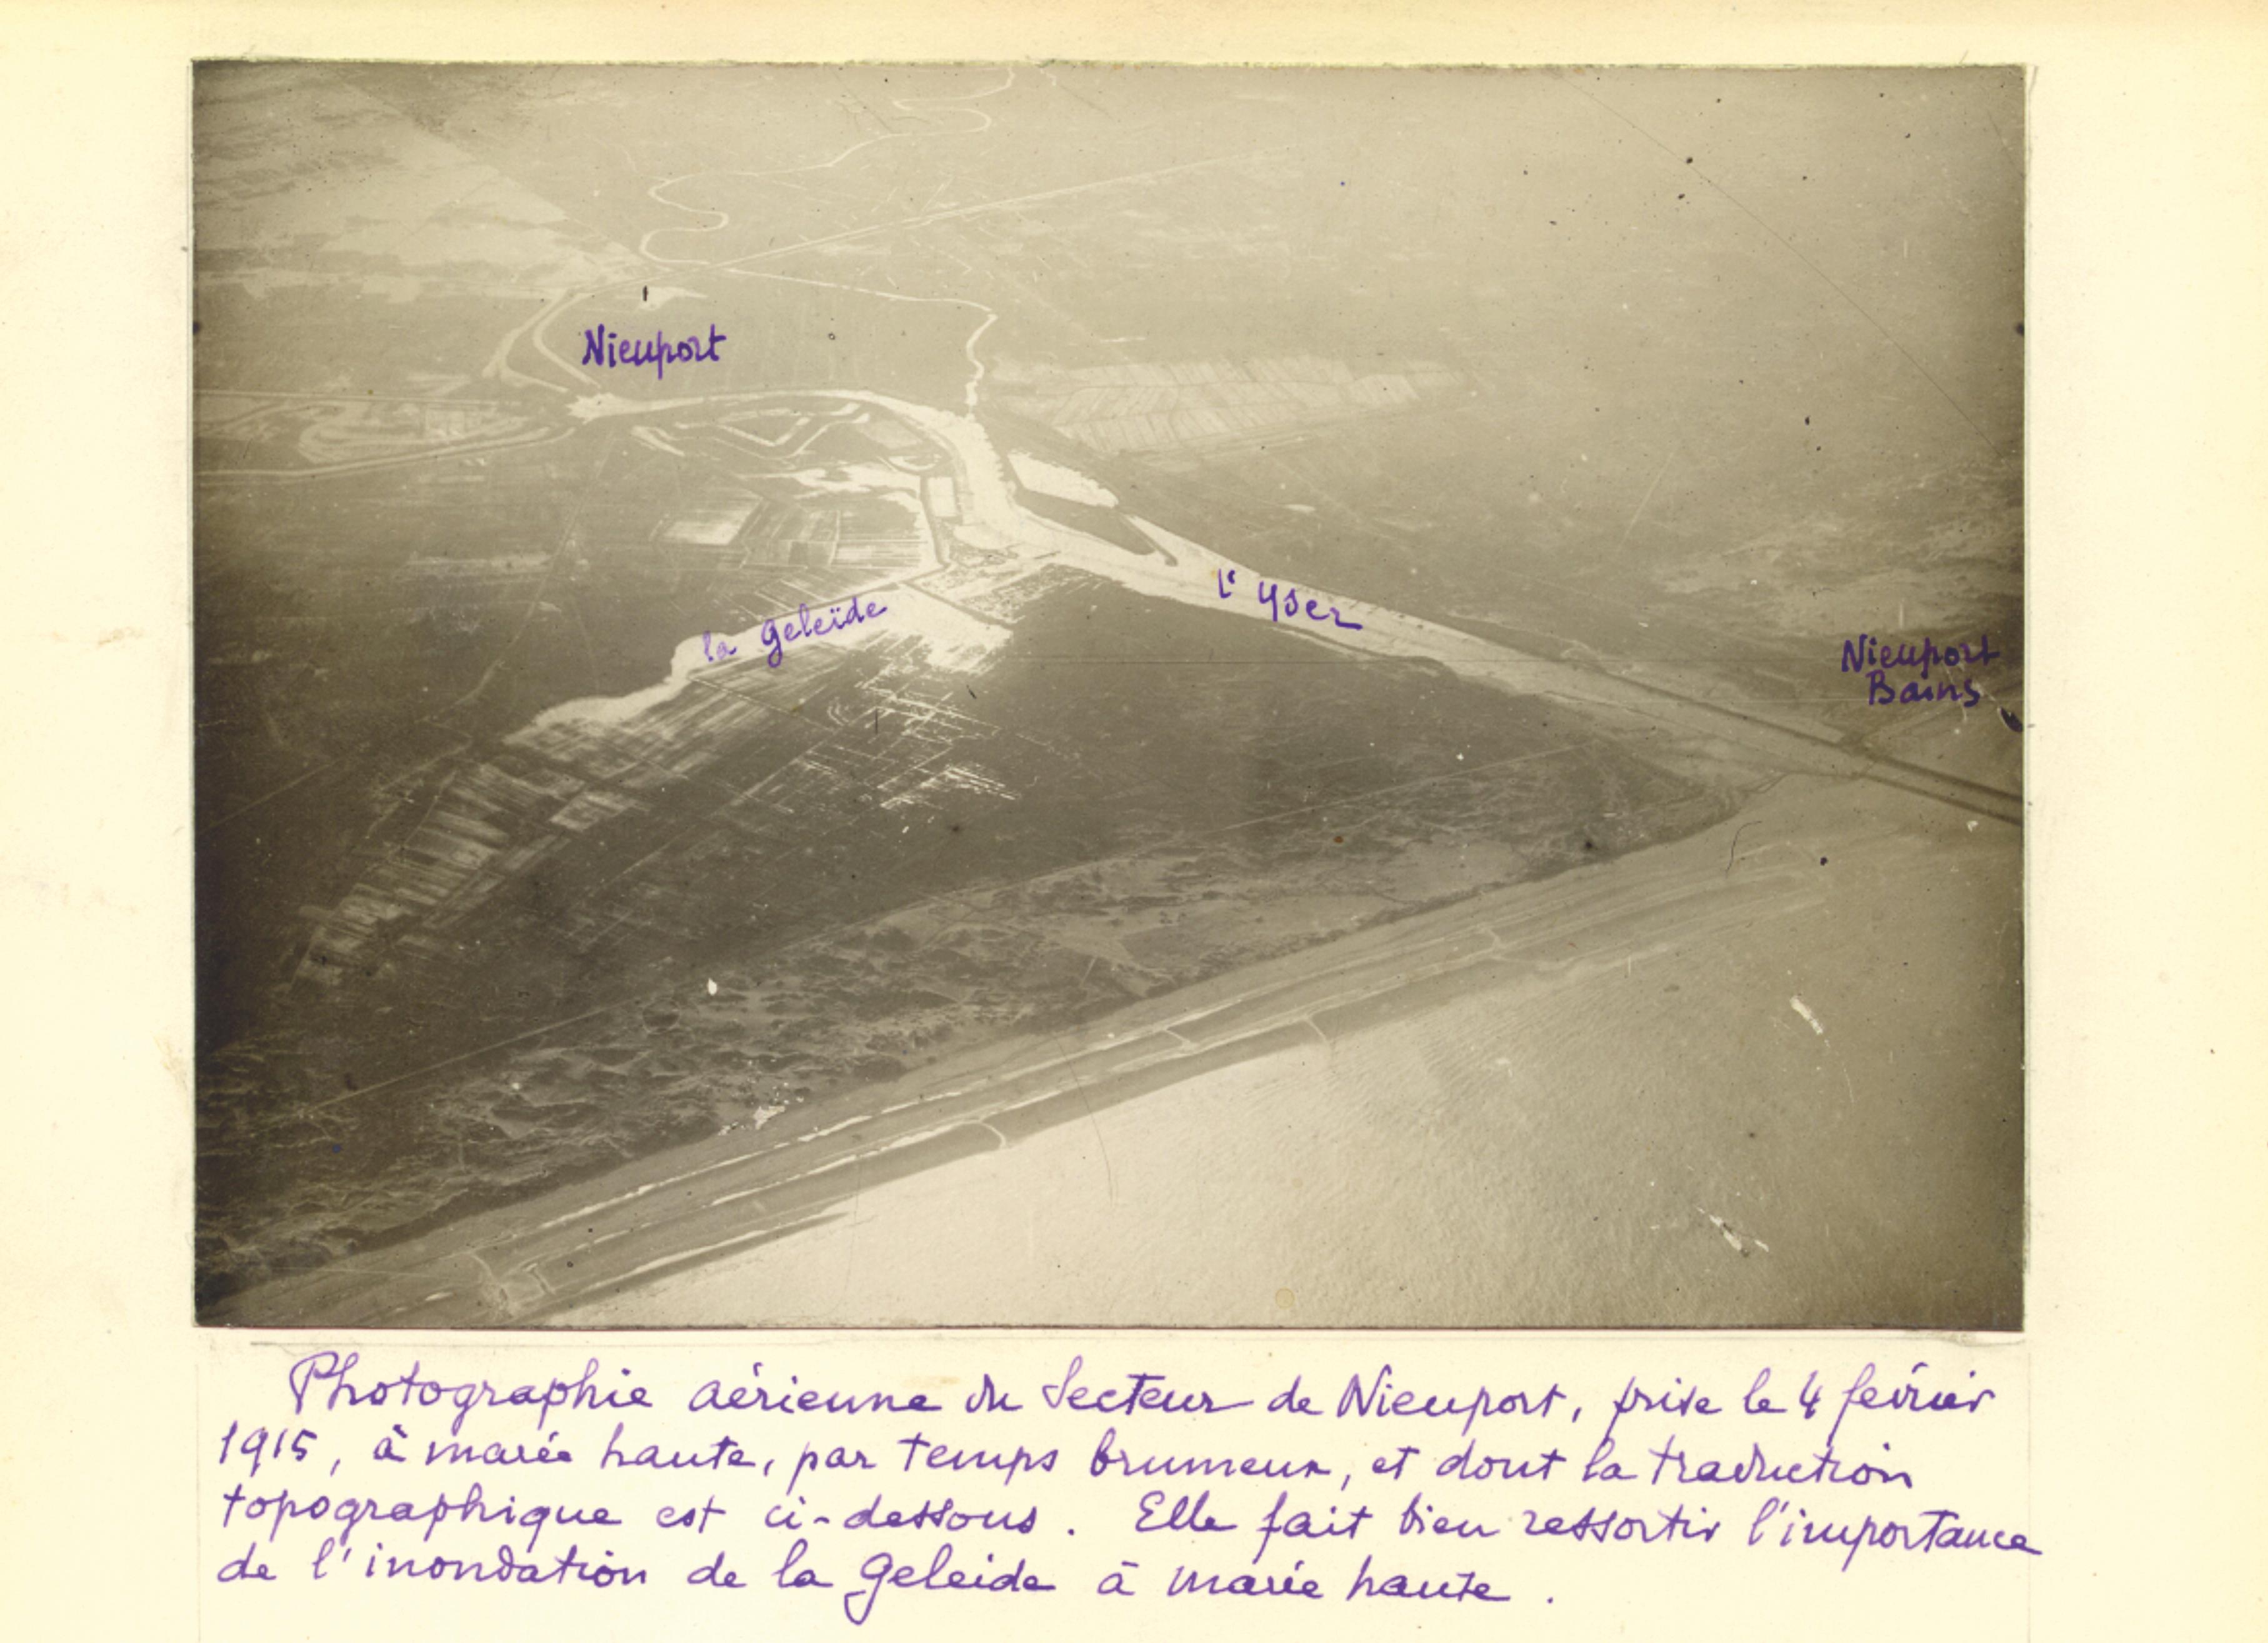 Nieuport
la Geleïde
l'Yser
Nieuport
Bains
Photographie aérienne du Secteur de Nieuport, prise le 4 février
1915, à marée haute, par temps brumeux, et dont la traduction
topographique est ci-dessous. Elle fait bien ressortir l'importance
de l'inondation de la Geleide à marée haute.